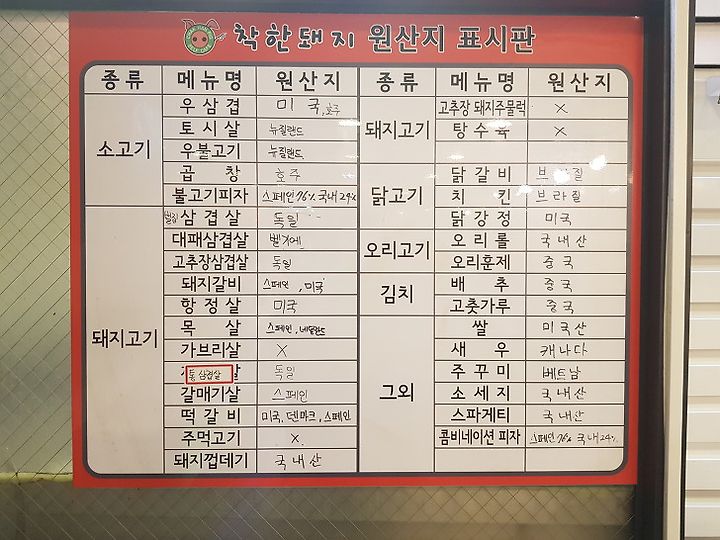 착한돼지 원산지 표시판
종류 메뉴명 원산지
소고기
우삼겹 미국, 호주
토시살 뉴질랜드
우불고기 뉴질랜드
곱창 호주
불고기피자 스페인76% 국내24%
돼지고기
삼겹살 독일
대패삼겹살 벨기에
고추장삼겹살 독일
돼지갈비 스페인, 미국
항정살 미국
목살 스페인, 네덜란드
가브리살 X
통삼겹살 살 독일
갈매기살 스페인
떡갈비 미국, 덴마크, 스페인
주먹고기 X
돼지껍데기 국내산
종류 메뉴명 원산지
돼지고기
고추장 돼지주물럭 X
탕수육 X
닭고기
닭갈비 브라질
치킨 브라질
닭강정 미국
오리고기
오리롤 국내산
오리훈제 중국
김치
배추 중국
고춧가루 중국
그외
쌀 미국산
새우 캐나다
주꾸미 베트남
소세지 국내산
스파게티 국내산
콤비네이션 피자 스페인76% 국내24%